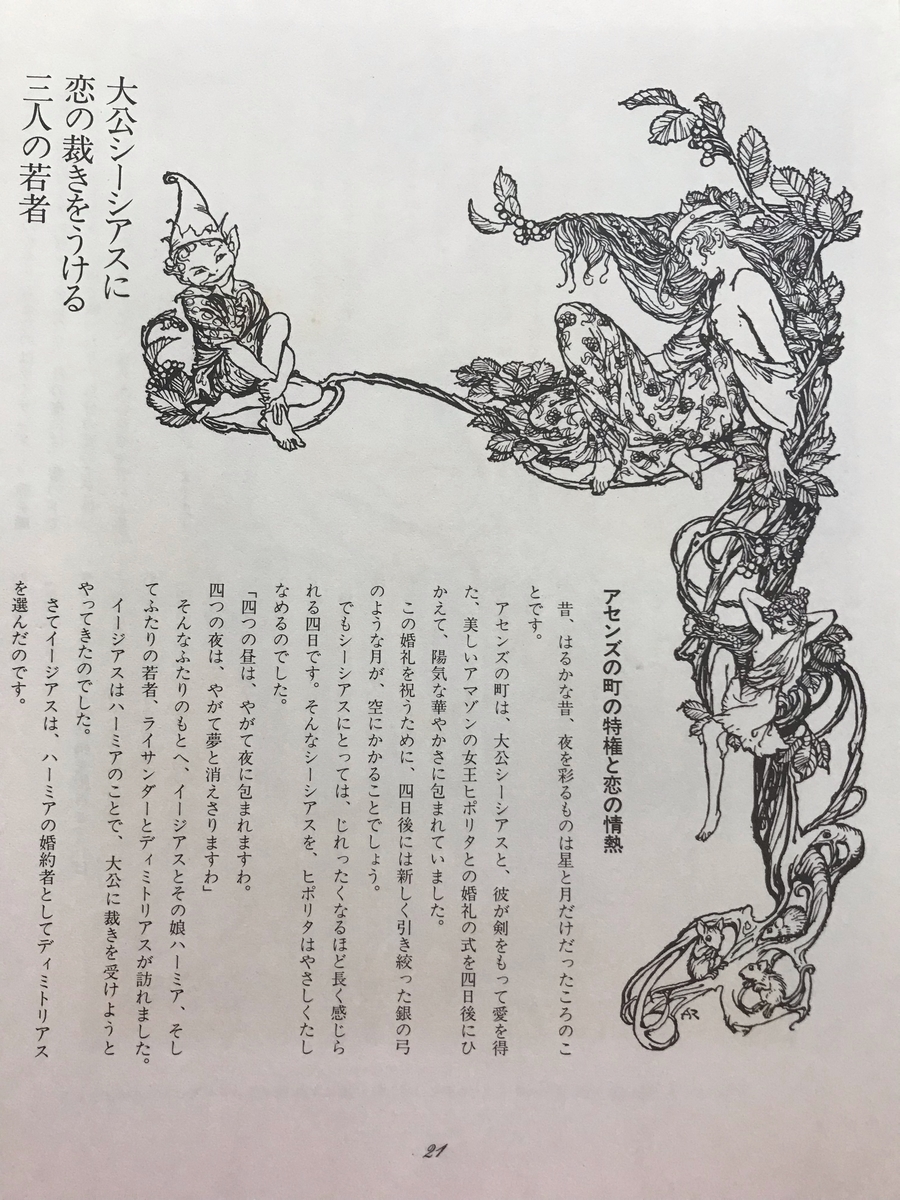 大公シーシアスに
恋の裁きをうける
三人の若者
アセンズの町の特権と恋の情熱
昔、はるかな昔、夜を彩るものは星と月だけだったころのこ
とです。
アセンズの町は、大公シーシアスと、彼が剣をもって愛を得
た、美しいアマゾンの女王ヒポリタとの婚礼の式を四日後にひ
かえて、陽気な華やかさに包まれていました。
この婚礼を祝うために、四日後には新しく引き絞った銀の弓
のような月が、空にかかることでしょう。
でもシーシアスにとっては、じれったくなるほど長く感じら
れる四日です。そんなシーシアスを、ヒポリタはやさしくたし
なめるのでした。
「四つの昼は、やがて夜に包まれますわ。
四つの夜は、やがて夢と消えさりますわ」
そんなふたりのもとへ、イージアスとその娘ハーミア、そし
てふたりの若者、ライサンダーとディミトリアスが訪れました。
イージアスはハーミアのことで、大公に裁きを受けようと
やってきたのでした。
さてイージアスは、ハーミアの婚約者としてディミトリアス
を選んだのです。
AR
21